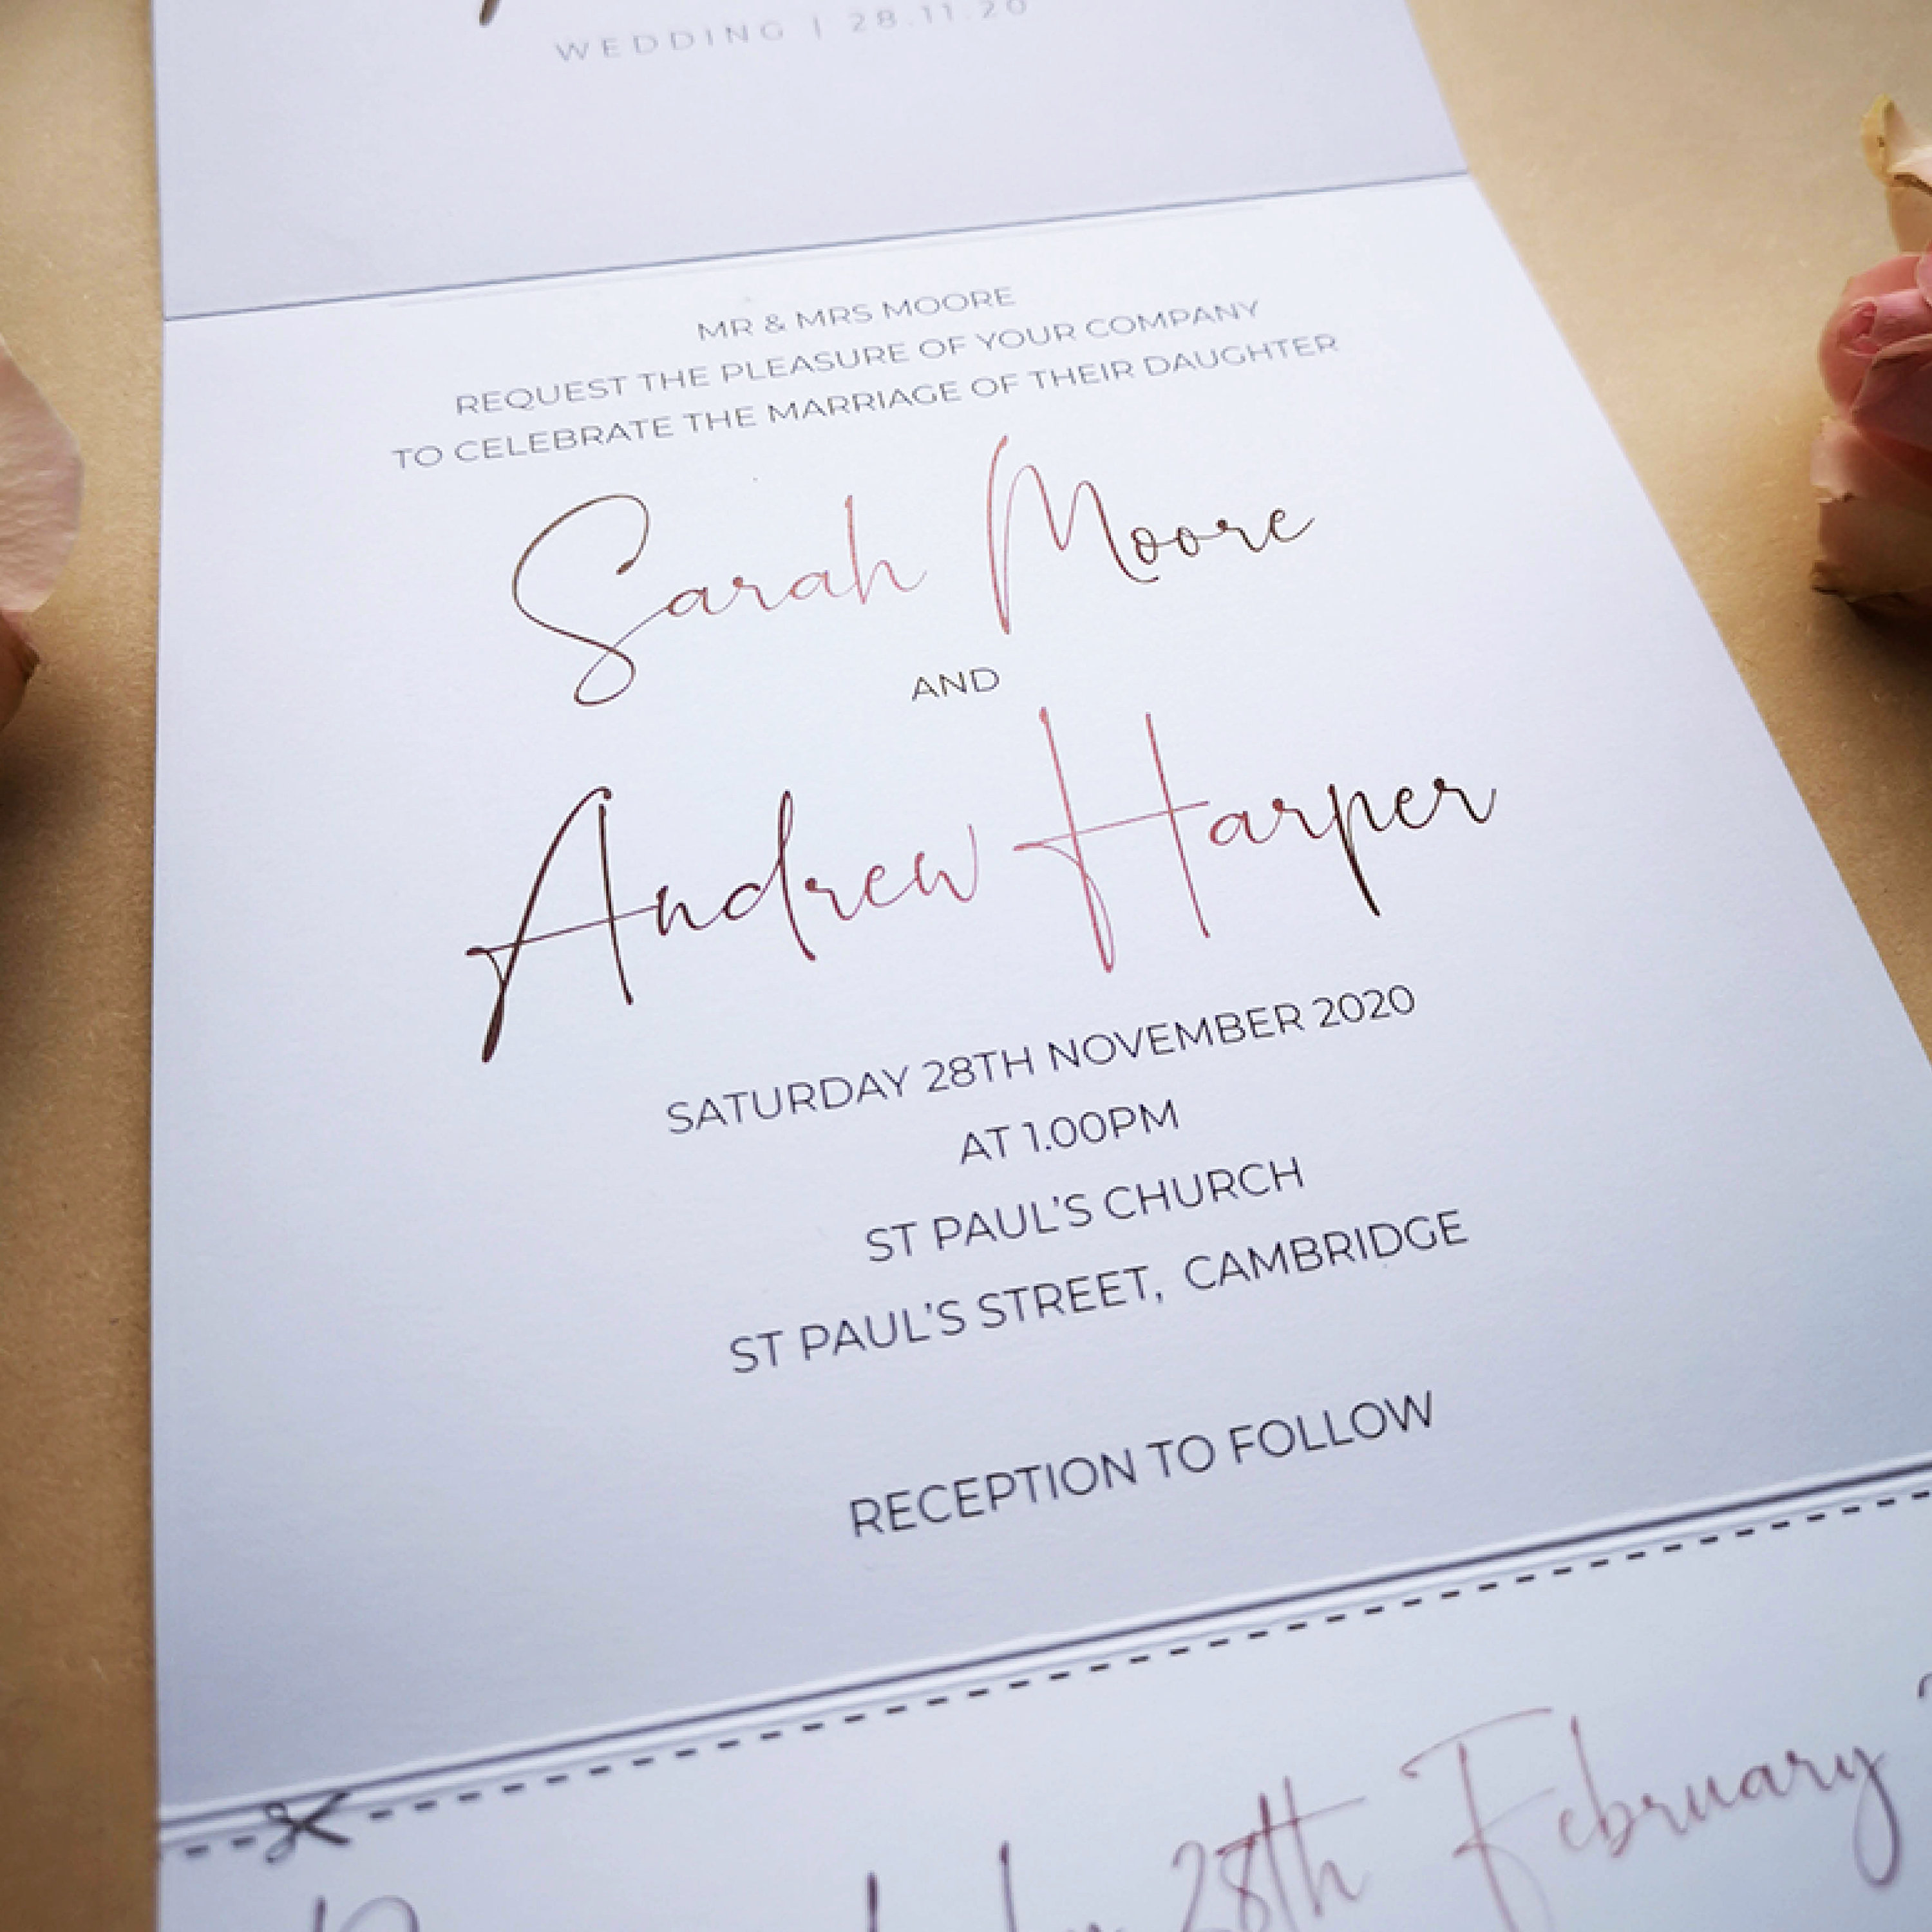 WEDDING | 28.11.20
MR & MRS MOORE
REQUEST THE PLEASURE OF YOUR COMPANY
TO CELEBRATE THE MARRIAGE OF THEIR DAUGHTER
Sarah Moore
AND
Andrew Harper
SATURDAY 28TH NOVEMBER 2020
AT 1.00PM
ST PAUL'S CHURCH
ST PAUL'S STREET, CAMBRIDGE
RECEPTION TO FOLLOW
28th February